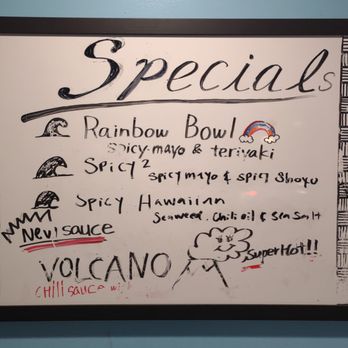 Specials
Rainbow Bowl
Spicy mayo & teriyaki
Spicy²
Spicy mayo & spicy Shoyu
Spicy Hawaiian
Seaweed, Chili oil & Sea Salt
New! sauce
VOLCANO
Super Hot!!
Chili sauce